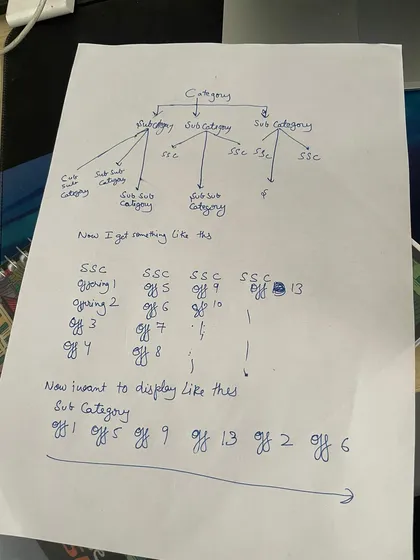 Category
Subcategory Sub Category Sub Category
SSC SSC SSC SSC
Sub Sub Category
Sub Sub Category
Sub Sub Category
Sub Sub Category
Now I got something like this
SSC SSC SSC SSC
offering 1 off 5 off 9 off 13
offering 2 off 6 off 10
off 3 off 7
off 4 off 8
Now i want to display like this
Sub Category
off 1 off 5 off 9 off 13 off 2 off 6